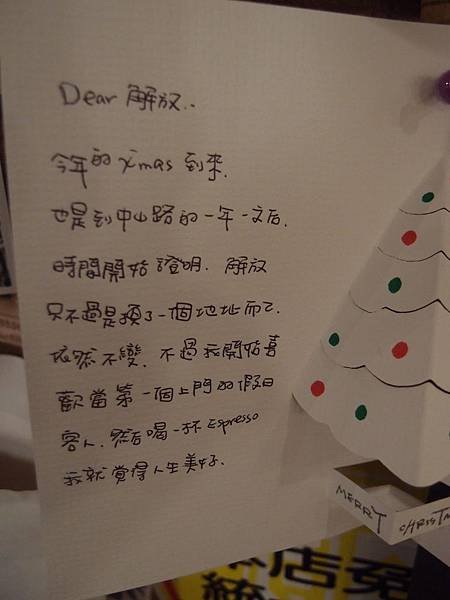 Dear 解放..
今年的 X'mas 到來.
也是到中山路的一年一文后.
時間開始證明. 解放
只不過是換了一個地址而己.
依然不變. 不過我開始喜
歡當第一個上門的假日
客人. 然后喝一杯 Espresso
我就覺得人生美好.
MERRY CHRISTM
店免
統